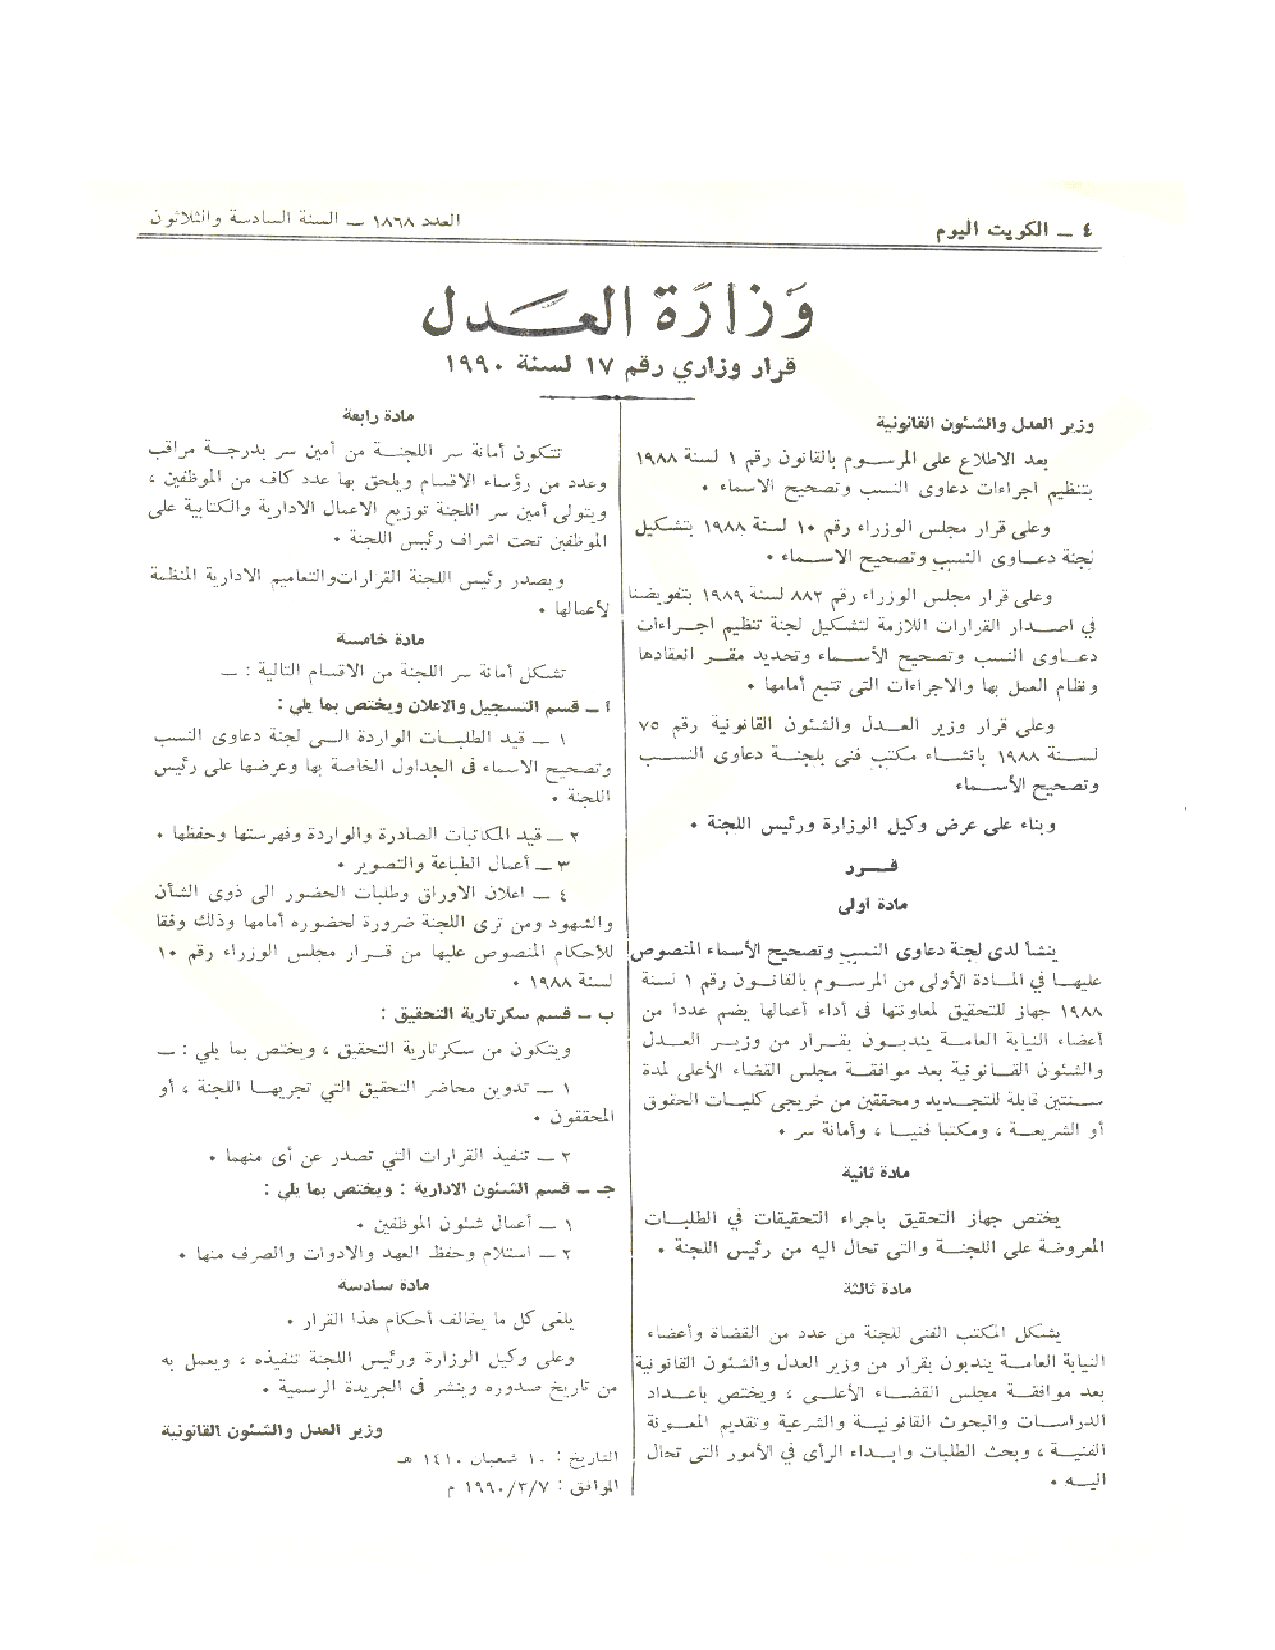 ٤ ــ الكويت اليوم
العدد ١٨٦٨ ــ السنة السادسة والثلاثون
وزارة العدل
قرار وزاري رقم ١٧ لسنة ١٩٩٠
وزير العدل والشئون القانونية
بعد الاطلاع على المرسوم بالقانون رقم ١ لسنة ١٩٨٨
بتنظيم اجراءات دعاوى النسب وتصحيح الاسماء ٠
وعلى قرار مجلس الوزراء رقم ١٠ لسنة ١٩٨٨ بتشكيل
لجنة دعاوى النسب وتصحيح الاسماء ٠
وعلى قرار مجلس الوزراء رقم ٨٨٣ لسنة ١٩٨٩ بتفويضنا
في اصدار القرارات اللازمة لتشكيل لجنة تنظيم اجراءات
دعاوى النسب وتصحيح الأسماء وتحديد مقر انعقادها
ونظام العمل بها والاجراءات التى تتبع أمامها ٠
وعلى قرار وزير العدل والشئون القانونية رقم ٧٥
لسنة ١٩٨٨ بانشاء مكتب فنى بلجنة دعاوى النسب
وتصحيح الأسماء
وبناء على عرض وكيل الوزارة ورئيس اللجنة ٠
قرر
مادة اولى
ينشأ لدى لجنة دعاوى النسب وتصحيح الأسماء المنصوص
عليها في المادة الأولى من المرسوم بالقانون رقم ١ لسنة
١٩٨٨ جهاز للتحقيق لمعاونتها فى أداء أعمالها يضم عددا من
أعضاء النيابة العامة يندبون بقرار من وزير العدل
والشئون القانونية بعد موافقة مجلس القضاء الأعلى لمدة
سنتين قابلة للتجديد ومحققين من خريجى كليات الحقوق
أو الشريعة ، ومكتبا فنيا ، وأمانة سر ٠
مادة ثانية
يختص جهاز التحقيق باجراء التحقيقات في الطلبات
المعروضة على اللجنة والتى تحال اليه من رئيس اللجنة ٠
مادة ثالثة
يشكل المكتب الفنى للجنة من عدد من القضاة وأعضاء
النيابة العامة يندبون بقرار من وزير العدل والشئون القانونية
بعد موافقة مجلس القضاء الأعلى ، ويختص باعداد
الدراسات والبحوث القانونية والشرعية وتقديم المعونة
الفنية ، وبحث الطلبات وابداء الرأى في الأمور التى تحال
اليه ٠
مادة رابعة
تتكون أمانة سر اللجنة من أمين سر بدرجة مراقب
وعدد من رؤساء الاقسام ويلحق بها عدد كاف من الموظفين ،
ويتولى أمين سر اللجنة توزيع الاعمال الادارية والكتابية على
الموظفين تحت اشراف رئيس اللجنة ٠
ويصدر رئيس اللجنة القرارات والتعاميم الادارية المنظمة
لأعمالها ٠
مادة خامسة
تشكل أمانة سر اللجنة من الاقسام التالية : ــ
أ ــ قسم التسجيل والاعلان ويختص بما يلي :
١ ــ قيد الطلبات الواردة الى لجنة دعاوى النسب
وتصحيح الاسماء فى الجداول الخاصة بها وعرضها على رئيس
اللجنة ٠
٢ ــ قيد المكاتبات الصادرة والواردة وفهرستها وحفظها ٠
٣ ــ أعمال الطباعة والتصوير ٠
٤ ــ اعلان الاوراق وطلبات الحضور الى ذوى الشأن
والشهود ومن ترى اللجنة ضرورة لحضوره أمامها وذلك وفقا
للأحكام المنصوص عليها من قرار مجلس الوزراء رقم ١٠
لسنة ١٩٨٨ ٠
ب ــ قسم سكرتارية التحقيق :
ويتكون من سكرتارية التحقيق ، ويختص بما يلي : ــ
١ ــ تدوين محاضر التحقيق التي تجريها اللجنة ، أو
المحققون ٠
٢ ــ تنفيذ القرارات التي تصدر عن أى منهما ٠
جـ ــ قسم الشئون الادارية : ويختص بما يلي :
١ ــ أعمال شئون الموظفين ٠
٢ ــ استلام وحفظ العهد والادوات والصرف منها ٠
مادة سادسة
يلغى كل ما يخالف أحكام هذا القرار ٠
وعلى وكيل الوزارة ورئيس اللجنة تنفيذه ، ويعمل به
من تاريخ صدوره وينشر فى الجريدة الرسمية ٠
وزير العدل والشئون القانونية
التاريخ : ١٠ شعبان ١٤١٠ هـ
الموافق : ١٩٩٠/٣/٧ م